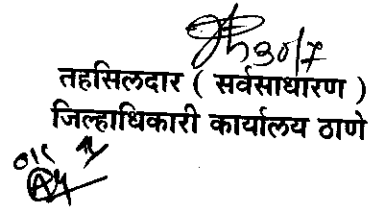 30/7
तहसिलदार ( सर्वसाधारण )
जिल्हाधिकारी कार्यालय ठाणे